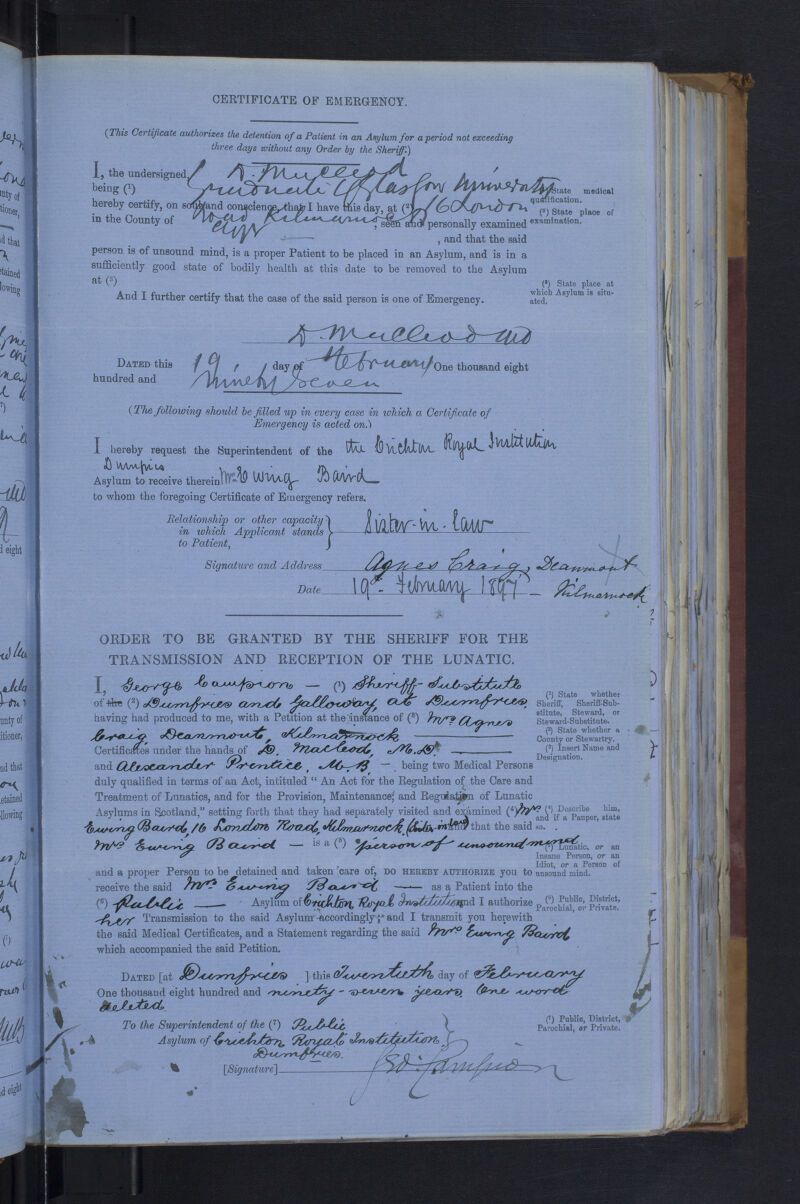 CERTIFICATE OF EMERGENCY.
(This Certificate authorizes the detention of a Patient in an Asylum for a period not exceeding
three days without any Order by the Sheriff.)
I, the undersigned, D. Macleod
being (¹) Graduate of Glasgow University
(¹) State medical
qualification.
hereby certify, on soul and conscience, that I have this day, at (²) 16 London
Road Kilmarnock
in the County of Ayr, seen and personally examined
(²) State place of
examination.
, and that the said
person is of unsound mind, is a proper Patient to be placed in an Asylum, and is in a
sufficiently good state of bodily health at this date to be removed to the Asylum
at (³)
(³) State place at
which Asylum is situ-
ated.
And I further certify that the case of the said person is one of Emergency.
D. Macleod MD
DATED this 19 day of February One thousand eight
hundred and Ninety Seven
(The following should be filled up in every case in which a Certificate of
Emergency is acted on.)
I hereby request the Superintendent of the the Crichton Royal Institution
Dumfries
Asylum to receive therein Mrs Ewing Baird
to whom the foregoing Certificate of Emergency refers.
Relationship or other capacity
in which Applicant stands
to Patient,
Sister-in-law
Signature and Address Agnes Craig, Deanmont
Date 19th February 1897 - Kilmarnock
ORDER TO BE GRANTED BY THE SHERIFF FOR THE
TRANSMISSION AND RECEPTION OF THE LUNATIC.
I, George Campion — (¹) Sheriff-Substitute
of the (²) Dumfries and Galloway, at Dumfries,
having had produced to me, with a Petition at the instance of (³) Mrs Agnes
Craig, Deanmont, Kilmarnock
Certificates under the hands of D. Macleod, M.D.
and Alexander Prentice, M.B, — being two Medical Persons
(¹) State whether
Sheriff, Sheriff-Sub-
stitute, Steward, or
Steward-Substitute.
(²) State whether a
County or Stewartry.
(³) Insert Name and
Designation.
duly qualified in terms of an Act, intituled "An Act for the Regulation of the Care and
Treatment of Lunatics, and for the Provision, Maintenance, and Regulation of Lunatic
Asylums in Scotland," setting forth that they had separately visited and examined (⁴) Mrs
Ewing Baird, 16 London Road, Kilmarnock, (Sister in law) and that the said
(⁴) Describe him,
and if a Pauper, state
so.
Mrs Ewing Baird — is a (⁵) person of unsound mind
(⁵) Lunatic, or an
Insane Person, or an
Idiot, or a Person of
unsound mind.
and a proper Person to be detained and taken care of, DO HEREBY AUTHORIZE you to
receive the said Mrs Ewing Baird — as a Patient into the
(⁶) Public — Asylum of Crichton Royal Institution and I authorize
(⁶) Public, District,
Parochial, or Private.
her Transmission to the said Asylum accordingly; and I transmit you herewith
the said Medical Certificates, and a Statement regarding the said Mrs Ewing Baird
which accompanied the said Petition.
DATED [at Dumfries ] this Twentieth day of February
One thousand eight hundred and ninety-seven years One word
deleted
To the Superintendent of the (⁷) Public
Asylum of Crichton Royal Institution,
Dumfries.
(⁷) Public, District,
Parochial, or Private.
[Signature] Geo: Campion